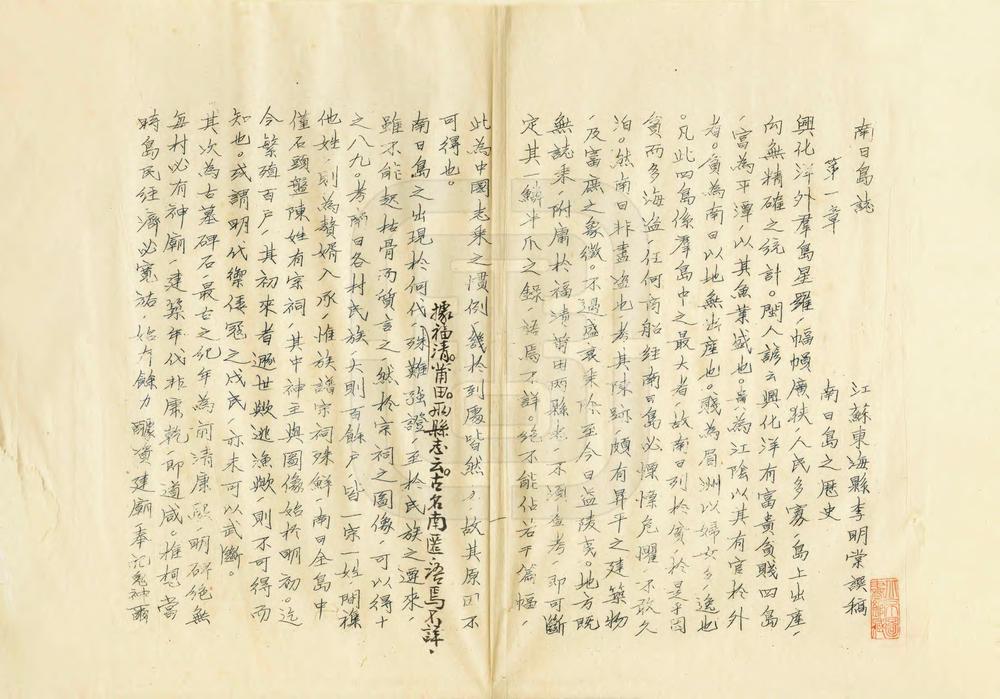 南日島誌
江蘇東海縣李明棠撰稿
第一章
南日島之歷史
興化洋外羣島星羅，幅幀廣狹人民多寡，島上出產，
向無精確之統計。閩人諺云興化洋有富貴貧賤四島
，富為平潭，以其魚業盛也。貴為江陰以其有官於外
者。貧為南日以地無出產也。賤為眉洲以婦女多逸也
。凡此四島係羣島中之最大者，故南日列於
貧而多海盜，任何商船經南日島必慄慄危懼不敢久
泊。然南日非盡盜也考其陳跡頗有昇平之建築物
，及富庶之象徵。不過盛衰乘除至今日益陵夷。地方既
無誌乘附庸於福清莆田兩縣志，不須查考，即可斷
定其一鱗半爪之錄，語焉不詳。絕不能佔若干篇幅，
此為中國志乘之慣例，幾於到處皆然，故其原因不
可得也。
據福清。莆田。兩縣志云。古名南匿語焉不詳。
南日島之出現於何代，殊難強證，至於民族之遷來，
雖不能起枯骨而質言之，然於宗祠之圖像，可以得十
之八九。考南日各村民族，大則百餘戶，皆一宗一姓間襍
他姓，則為贅婿入承，惟族譜宗祠殊鮮，南日全島中
僅石頭盤陳姓有宗祠，其中神主與圖像始於明初。迄
今繁殖百戶，其初來者遯世歟逃漁歟，則不可得而
知也。或謂明代禦倭寇之戍民，亦未可以武斷。
其次為古墓碑石最古之紀年為前清康熙，明碑絕無
每村必有神廟，建築年代非康乾，即道咸。推想當
時島民經濟必寬裕，始有餘力醵資建廟奉祀鬼神爾